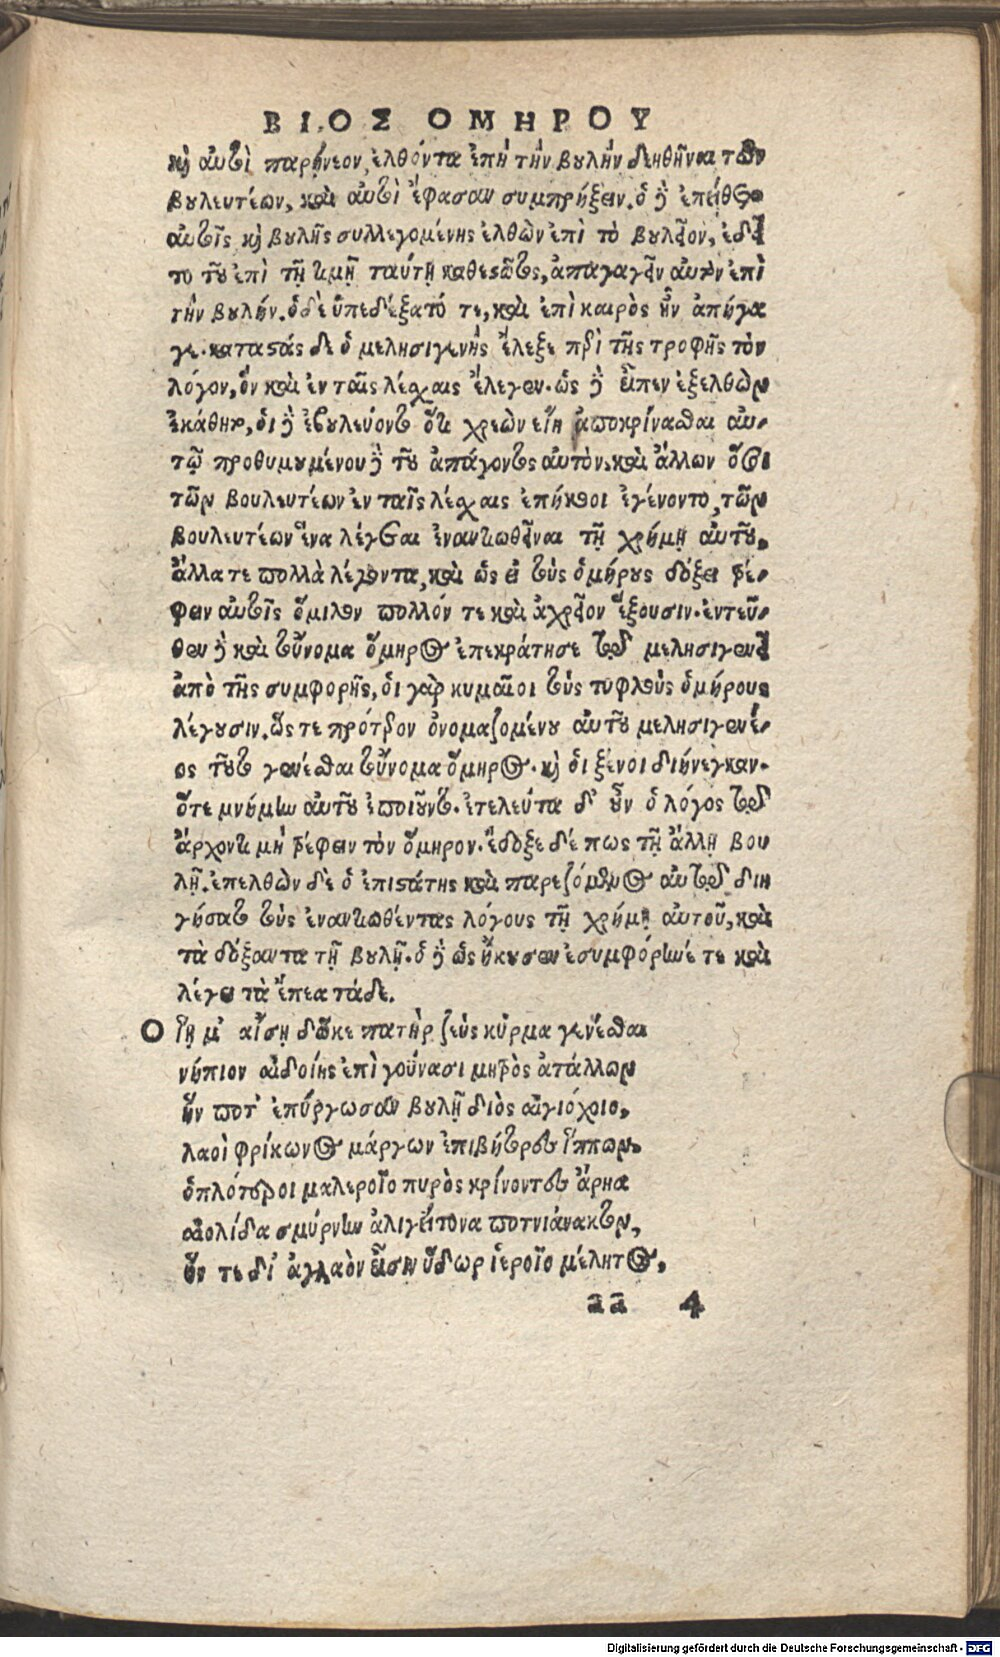 ΒΙΟΣ ΟΜΗΡΟΥ
καὶ αὐτοὶ παρῄνεον, ἐλθόντα ἐπὴ τὴν βουλὴν δεηθῆναι τῶν
βουλευτέων, καὶ αὐτοὶ ἔφασαν συμπρήξειν. ὁ δὲ ἐπείθετο
αὐτοῖς καὶ βουλῆς συλλεγομένης ἐλθὼν ἐπὶ τὸ βουλεῖον, ἐδεῖ
το τοῦ ἐπὶ τῇ τιμῇ ταύτῃ καθεστῶτος, ἀπαγαγεῖν αὐτὸν ἐπὶ
τὴν βουλήν. ὁ δὲ ὑπεδέξατό τε, καὶ ἐπὶ καιρὸς ἦν ἀπήγα
γε. καταστάς δε ὁ μελησιγενὴς ἔλεξε περὶ τῆς τροφῆς τὸν
λόγον, ὃν καὶ ἐν ταῖς λέσχαις ἔλεγεν. ὡς δὲ εἶπεν ἐξελθὼν
ἐκάθητο, οἱ δὲ ἐβουλεύοντο ὅτι χρεὼν εἴη ἀποκρίνασθαι αὐ-
τῷ προθυμουμένου δὲ τοῦ ἀπάγοντος αὐτὸν, καὶ ἄλλων ὅσοι
τῶν βουλευτέων ἐν ταῖς λέσχαις ἐπήκοοι ἐγένοντο, τῶν
βουλευτέων ἕνα λέγεται ἐναντιωθῆναι τῇ χρήμῃ αὐτοῦ,
ἄλλα τε πολλὰ λέγοντα, καὶ ὡς εἰ τοὺς ὁμήρους δόξει τρέ-
φειν αὐτοῖς ὅμιλον πολλόν τε καὶ ἀχρεῖον ἕξουσιν. ἐντεῦ-
θεν δὲ καὶ τοὔνομα ὅμηρος ἐπεκράτησε τῷ μελησιγενεῖ
ἀπὸ τῆς συμφορῆς, οἱ γὰρ κυμαῖοι τοὺς τυφλοὺς ὁμήρους
λέγουσιν. ὥς τε πρότερον ὀνομαζομένου αὐτοῦ μελησιγενέ-
ος τοῦτο γενέσθαι τοὔνομα ὅμηρος. καὶ οἱ ξένοι διήνεγκαν.
ὅτε μνήμην αὐτοῦ ἐποιοῦντο. ἐτελεύτα δ' οὖν ὁ λόγος τῷ
ἄρχοντι μὴ τρέφειν τὸν ὅμηρον. ἔδοξε δέ πως τῇ ἄλλῃ βου
λῇ. ἐπελθὼν δὲ ὁ ἐπιστάτης καὶ παρεζόμενος αὐτῷ διη
γήσατο τοὺς ἐναντιωθέντας λόγους τῇ χρήμῃ αὐτοῦ, καὶ
τὰ δόξαντα τῇ βουλῇ. ὁ δὲ ὡς ἤκουσεν ἐσυμφόρηνέ τε καὶ
λέγει τὰ ἔπεα τάδε.
Ο ἵῃ μ' αἴσῃ δῶκε πατὴρ ζεὺς κύρμα γενέσθαι
νήπιον αἰδοίης ἐπὶ γούνασι μητρὸς ἀτάλλων
ἥν ποτ' ἐπύργωσαν βουλῇ διὸς αἰγιόχοιο,
λαοὶ φρίκωνος μάργων ἐπιβήτορες ἵππων,
ὁπλότεροι μαλεροῖο πυρὸς κρίνοντες ἄρηα
αἰολίδα σμύρνην ἁλιγείτονα ποτνιάνακτον,
ὅν τε δι' ἀγλαὸν εἶσιν ὕδωρ ἱεροῖο μέλητος,
aa 4
Digitalisierung gefördert durch die Deutsche Forschungsgemeinschaft - DFG